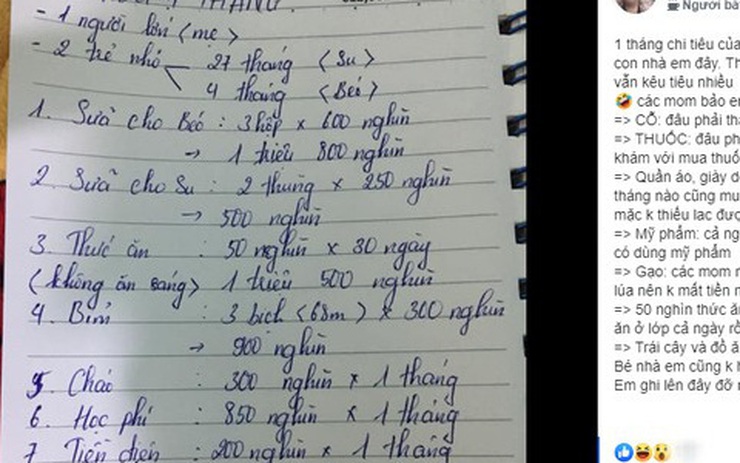 THÁNG
- 1 người lớn <mẹ>
- 2 trẻ nhỏ 27 tháng <Su>
4 tháng <Béo>
1. Sữa cho Béo : 3 hộp × 600 nghìn
→ 1 triệu 800 nghìn
2. Sữa cho Su : 2 thùng × 250 nghìn
→ 500 nghìn
3. Thức ăn : 50 nghìn × 30 ngày
<không ăn sáng> 1 triệu 500 nghìn
4. Bỉm : 3 bịch <68m> × 300 nghìn
→ 900 nghìn
5. Cháo : 300 nghìn × 1 tháng
6. Học phí : 850 nghìn × 1 tháng
7. Tiền điện : 200 nghìn × 1 tháng
Người bá
1 tháng chi tiêu của
con nhà em đây. Th
vẫn kêu tiêu nhiều
🤣 các mom bảo em
=> CỖ: đâu phải thá
=> THUỐC: đâu ph
khám với mua thuố
=> Quần áo, giày dé
tháng nào cũng mu
mặc k thiếu lạc đượ
=> Mỹ phẩm: cả ng
có dùng mỹ phẩm
=> Gạo: các mom n
lúa nên k mất tiền n
=> 50 nghìn thức ă
ăn ở lớp cả ngày rồ
=> Trái cây và đồ ă
Bé nhà em cũng k h
Em ghi lên đây đỡ n